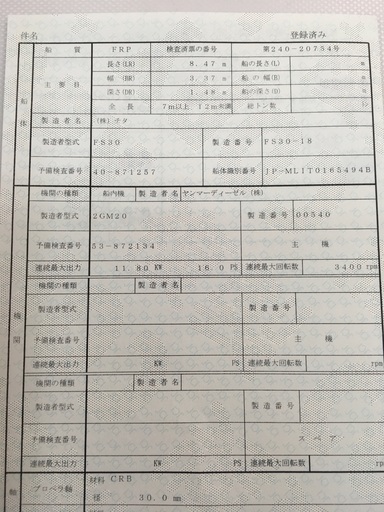 件名 登録済み
船体
船質 FRP 検査済票の番号 第240-20754号
主要目
長さ(LR) 8.47 m 船の長さ(L) m
幅(BR) 3.37 m 船の幅(B) m
深さ(DR) 1.48 m 船の深さ(D) m
全長 7m以上 12m未満 総トン数
製造者名 (株)チタ
製造者型式 FS30 製造番号 FS30-18
予備検査番号 40-871257 船体識別番号 JP-MLIT0165494B
機関
機関の種類 船内機 製造者名 ヤンマーディーゼル(株)
製造者型式 2GM20 製造番号 00540
予備検査番号 53-872134 主機
連続最大出力 11.80 KW 16.0 PS 連続最大回転数 3400 rpm
機関の種類 製造者名
製造者型式 製造番号
予備検査番号 主機
連続最大出力 KW PS 連続最大回転数 rpm
機関の種類 製造者名
製造者型式 製造番号
予備検査番号 スペア
連続最大出力 KW PS 連続最大回転数 rp
軸
プロペラ軸 材料 CRB
径 30.0 mm